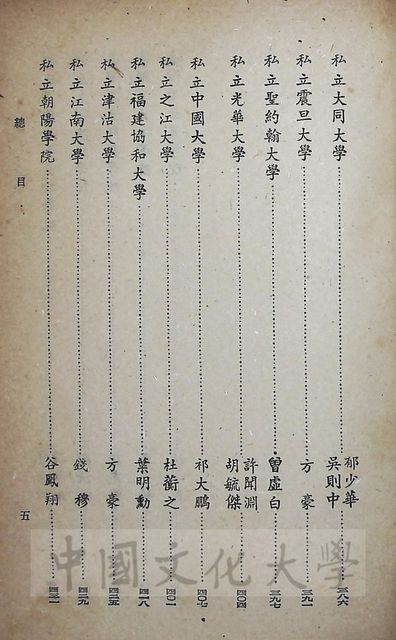 私立大同大學 郁少華 吳則中 三八六
私立震旦大學 方豪 三九一
私立聖約翰大學 曾虛白 三九七
私立光華大學 許聞淵 胡毓傑 四〇四
私立中國大學 祁大鵬 四〇七
私立之江大學 杜蘅之
私立福建協和大學 葉明勳 四一八
私立津沽大學 方豪 四二五
私立江南大學 錢穆 四二九
私立朝陽學院 谷鳳翔 四三一
總目 五
中國文化大學